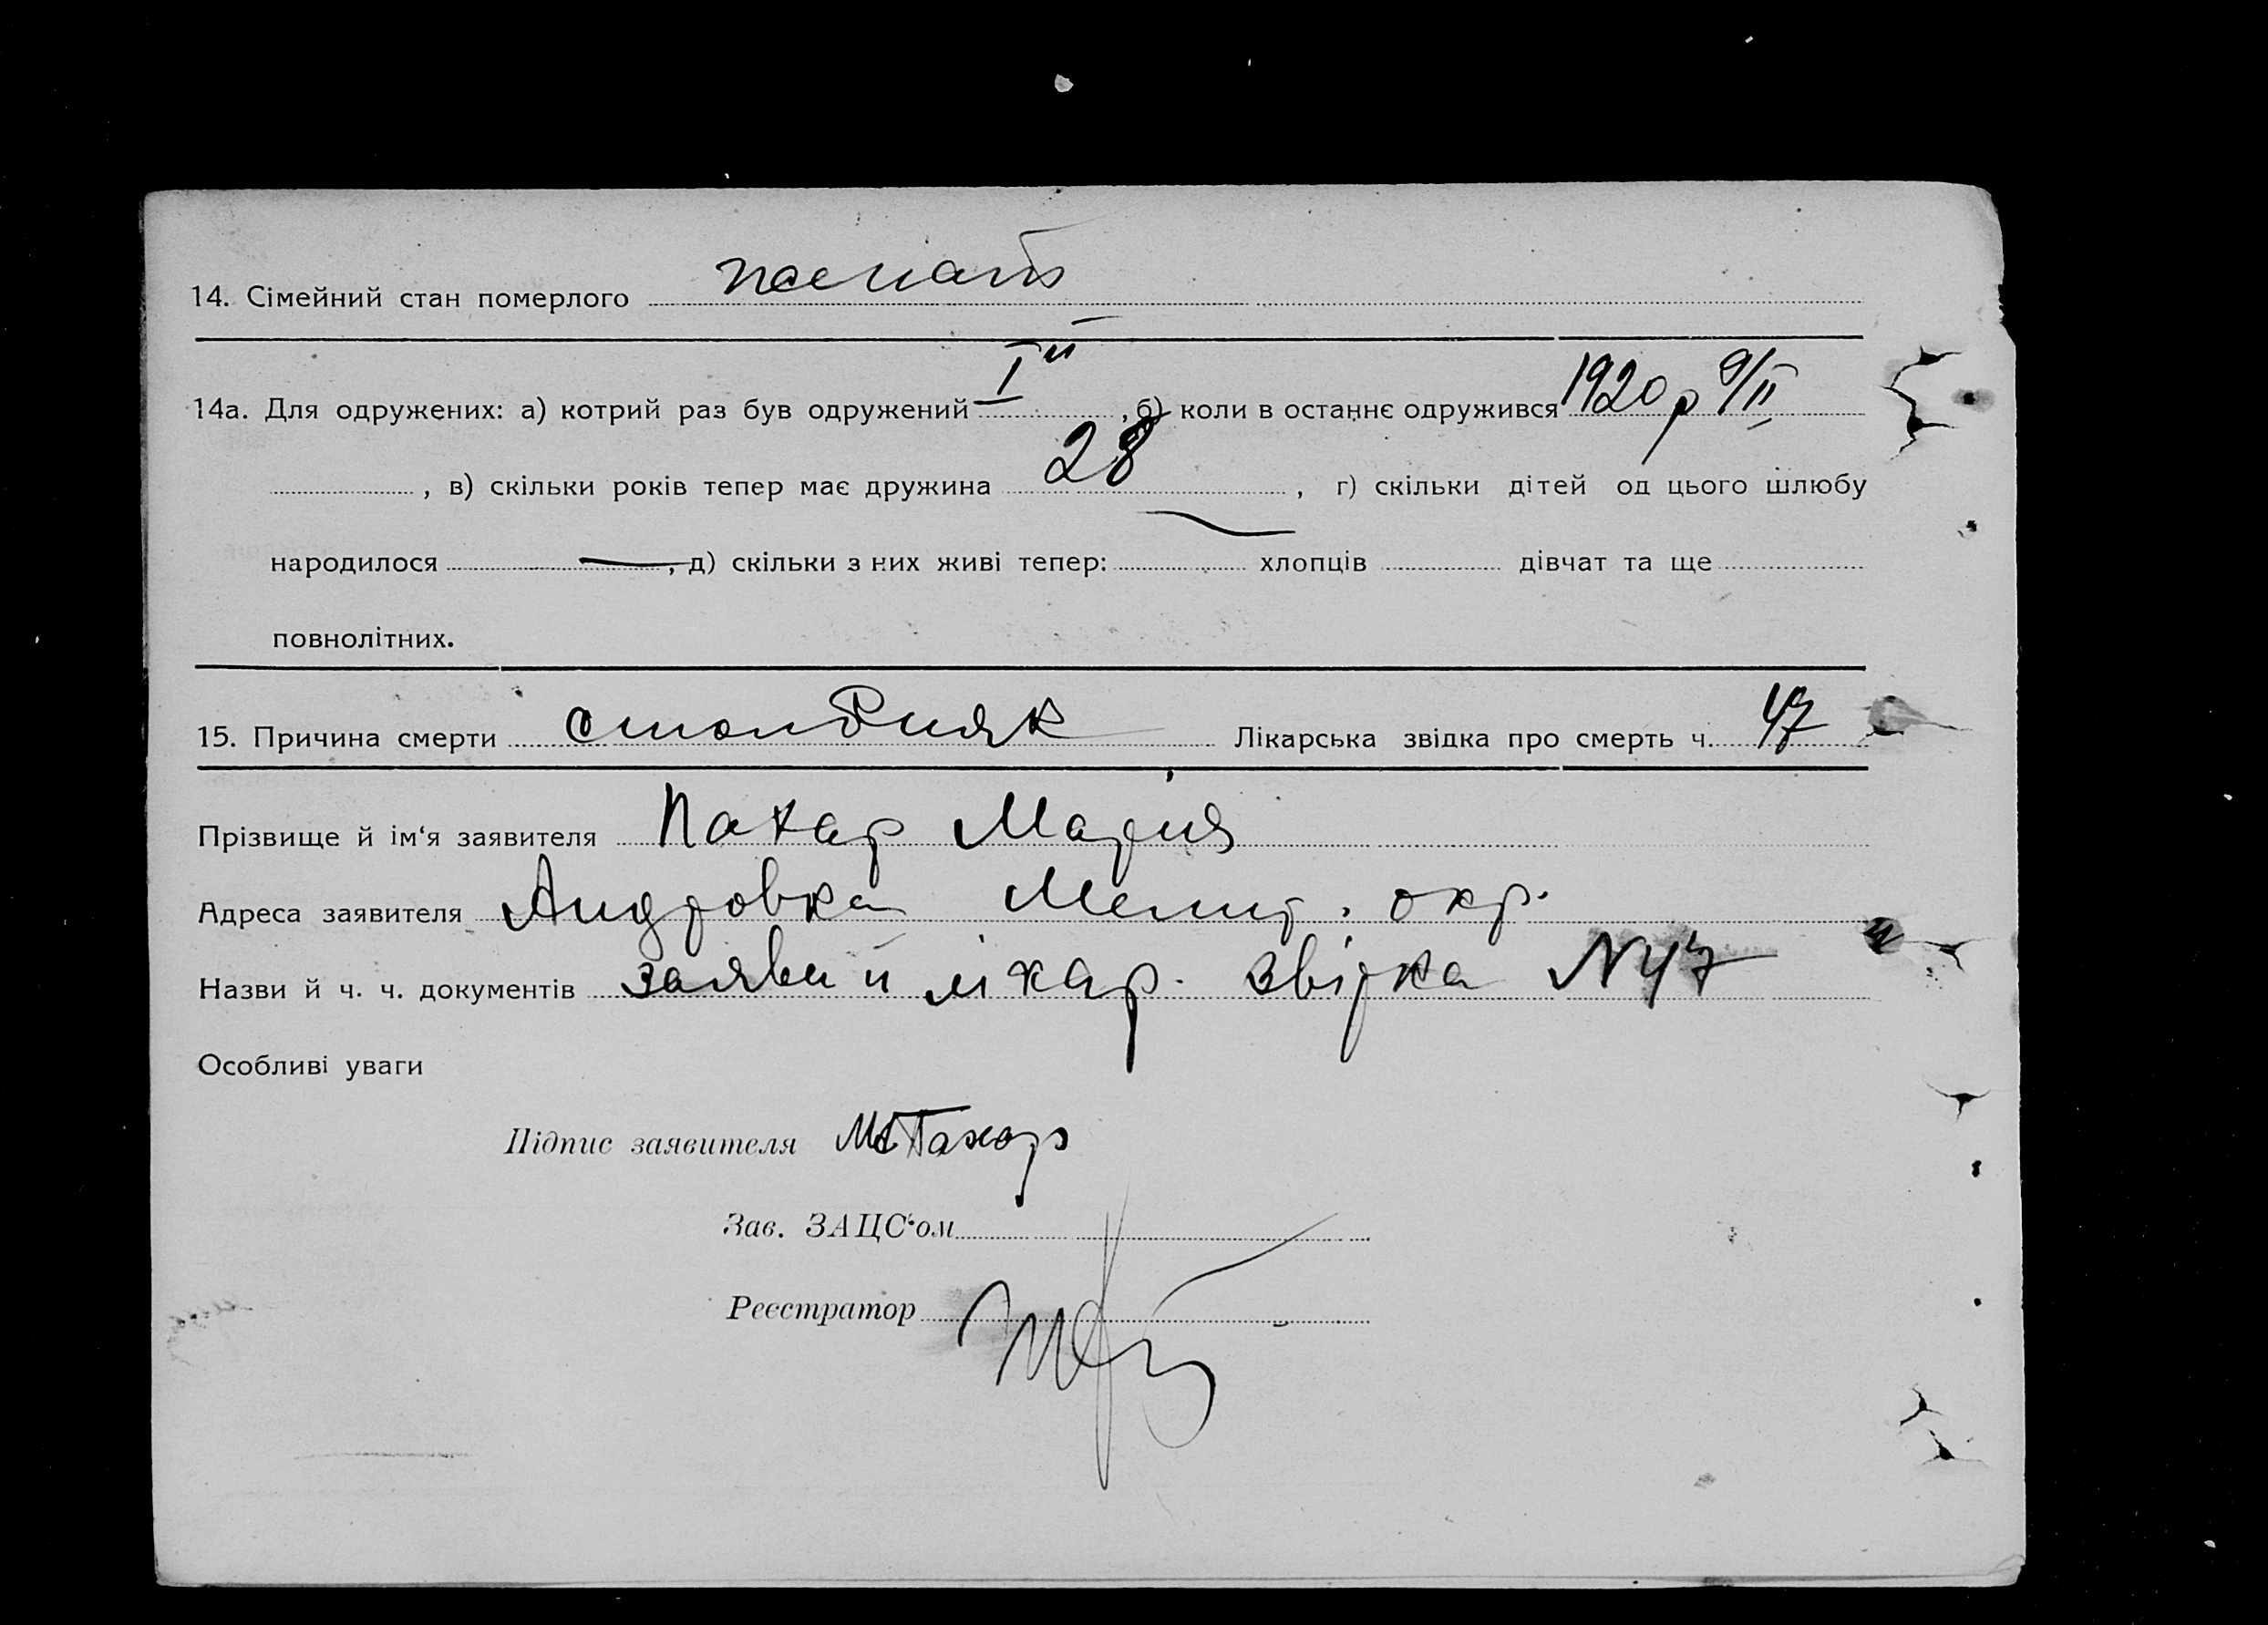 14. Сімейний стан померлого женатъ
14а. Для одружених: а) котрий раз був одружений Iй, б) коли в останнє одружився 1920 р 9/II
, в) скільки років тепер має дружина 28, г) скільки дітей од цього шлюбу
народилося —, д) скільки з них живі тепер: хлопців дівчат та ще
повнолітних.
15. Причина смерти столбняк Лікарська звідка про смерть ч. 47
Прізвище й ім'я заявителя Пахар Мария
Адреса заявителя Андровка Мелит. окр.
Назви й ч. ч. документів заява й лікар. звідка N47
Особливі уваги
Підпис заявителя М Пахар
Зав. ЗАЦС'ом
Реєстратор